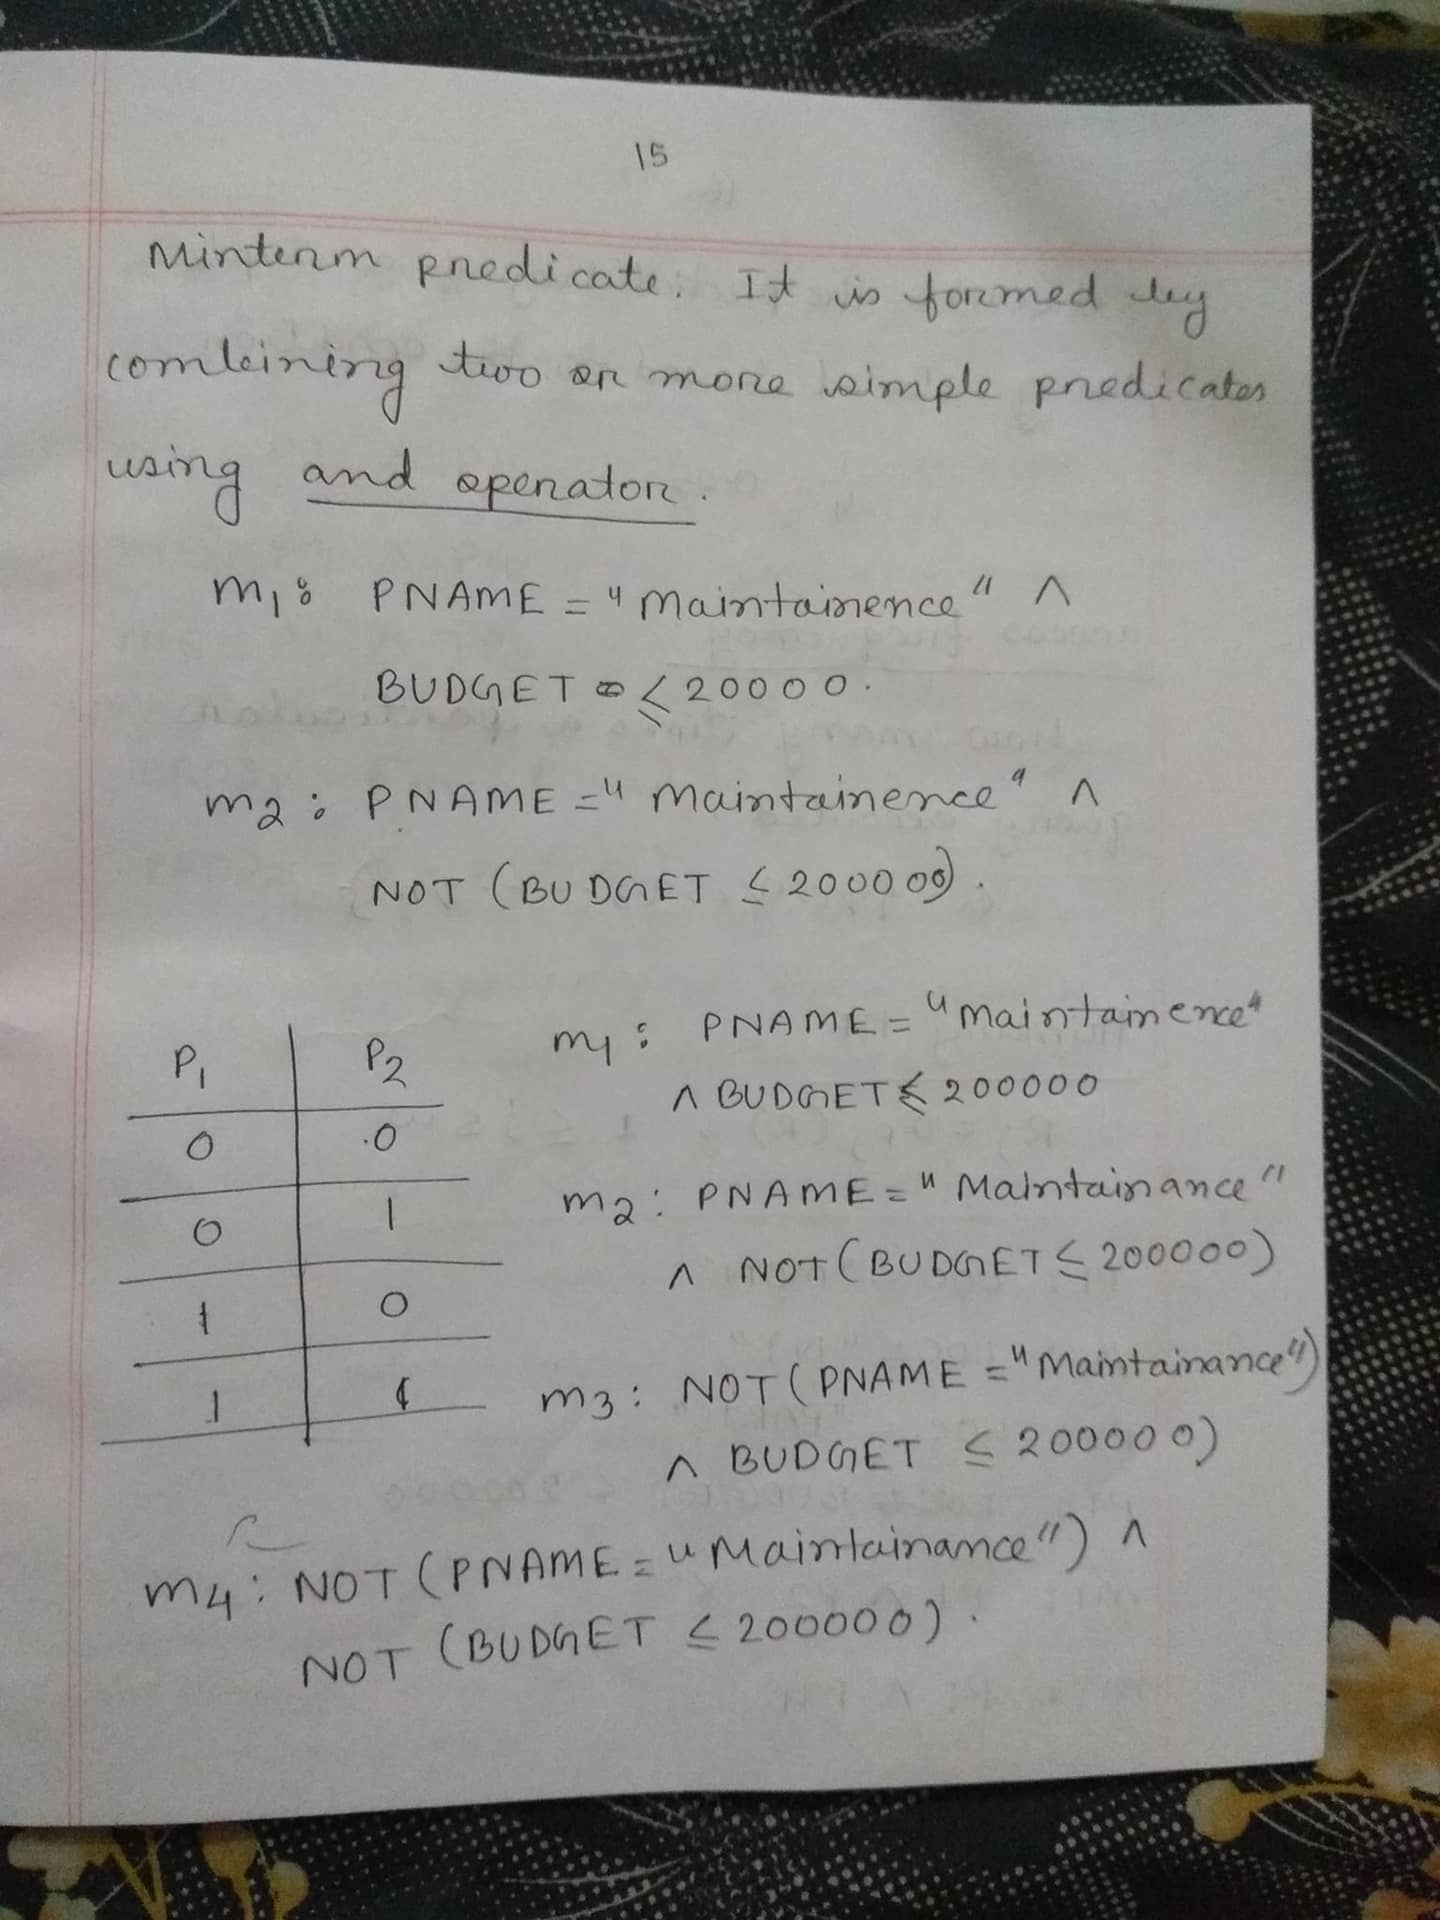 15
Minterm predicate. It is formed by
combining two or more simple predicates
using and operator.
m1: PNAME = "Maintainence" ∧
BUDGET = ≤ 20000.
m2: PNAME = "Maintainence" ∧
NOT (BUDGET ≤ 200000).
P1 P2
0 0
0 1
1 0
1 1
m1: PNAME = "Maintainence"
∧ BUDGET ≤ 200000
m2: PNAME = "Maintainance"
∧ NOT (BUDGET ≤ 200000)
m3: NOT (PNAME = "Maintainance")
∧ BUDGET ≤ 200000)
m4: NOT (PNAME = "Maintainance") ∧
NOT (BUDGET ≤ 200000).